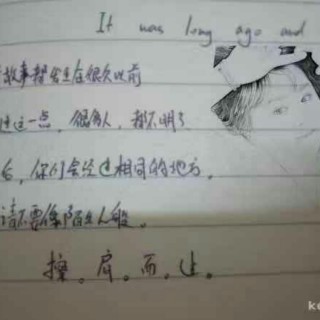 It was long ago and
故事都会在很久以前
这一点，很多人，都不明了
后，你们会经过相同的地方。
请不要像陌生人般。
擦。肩。而。过。
ke